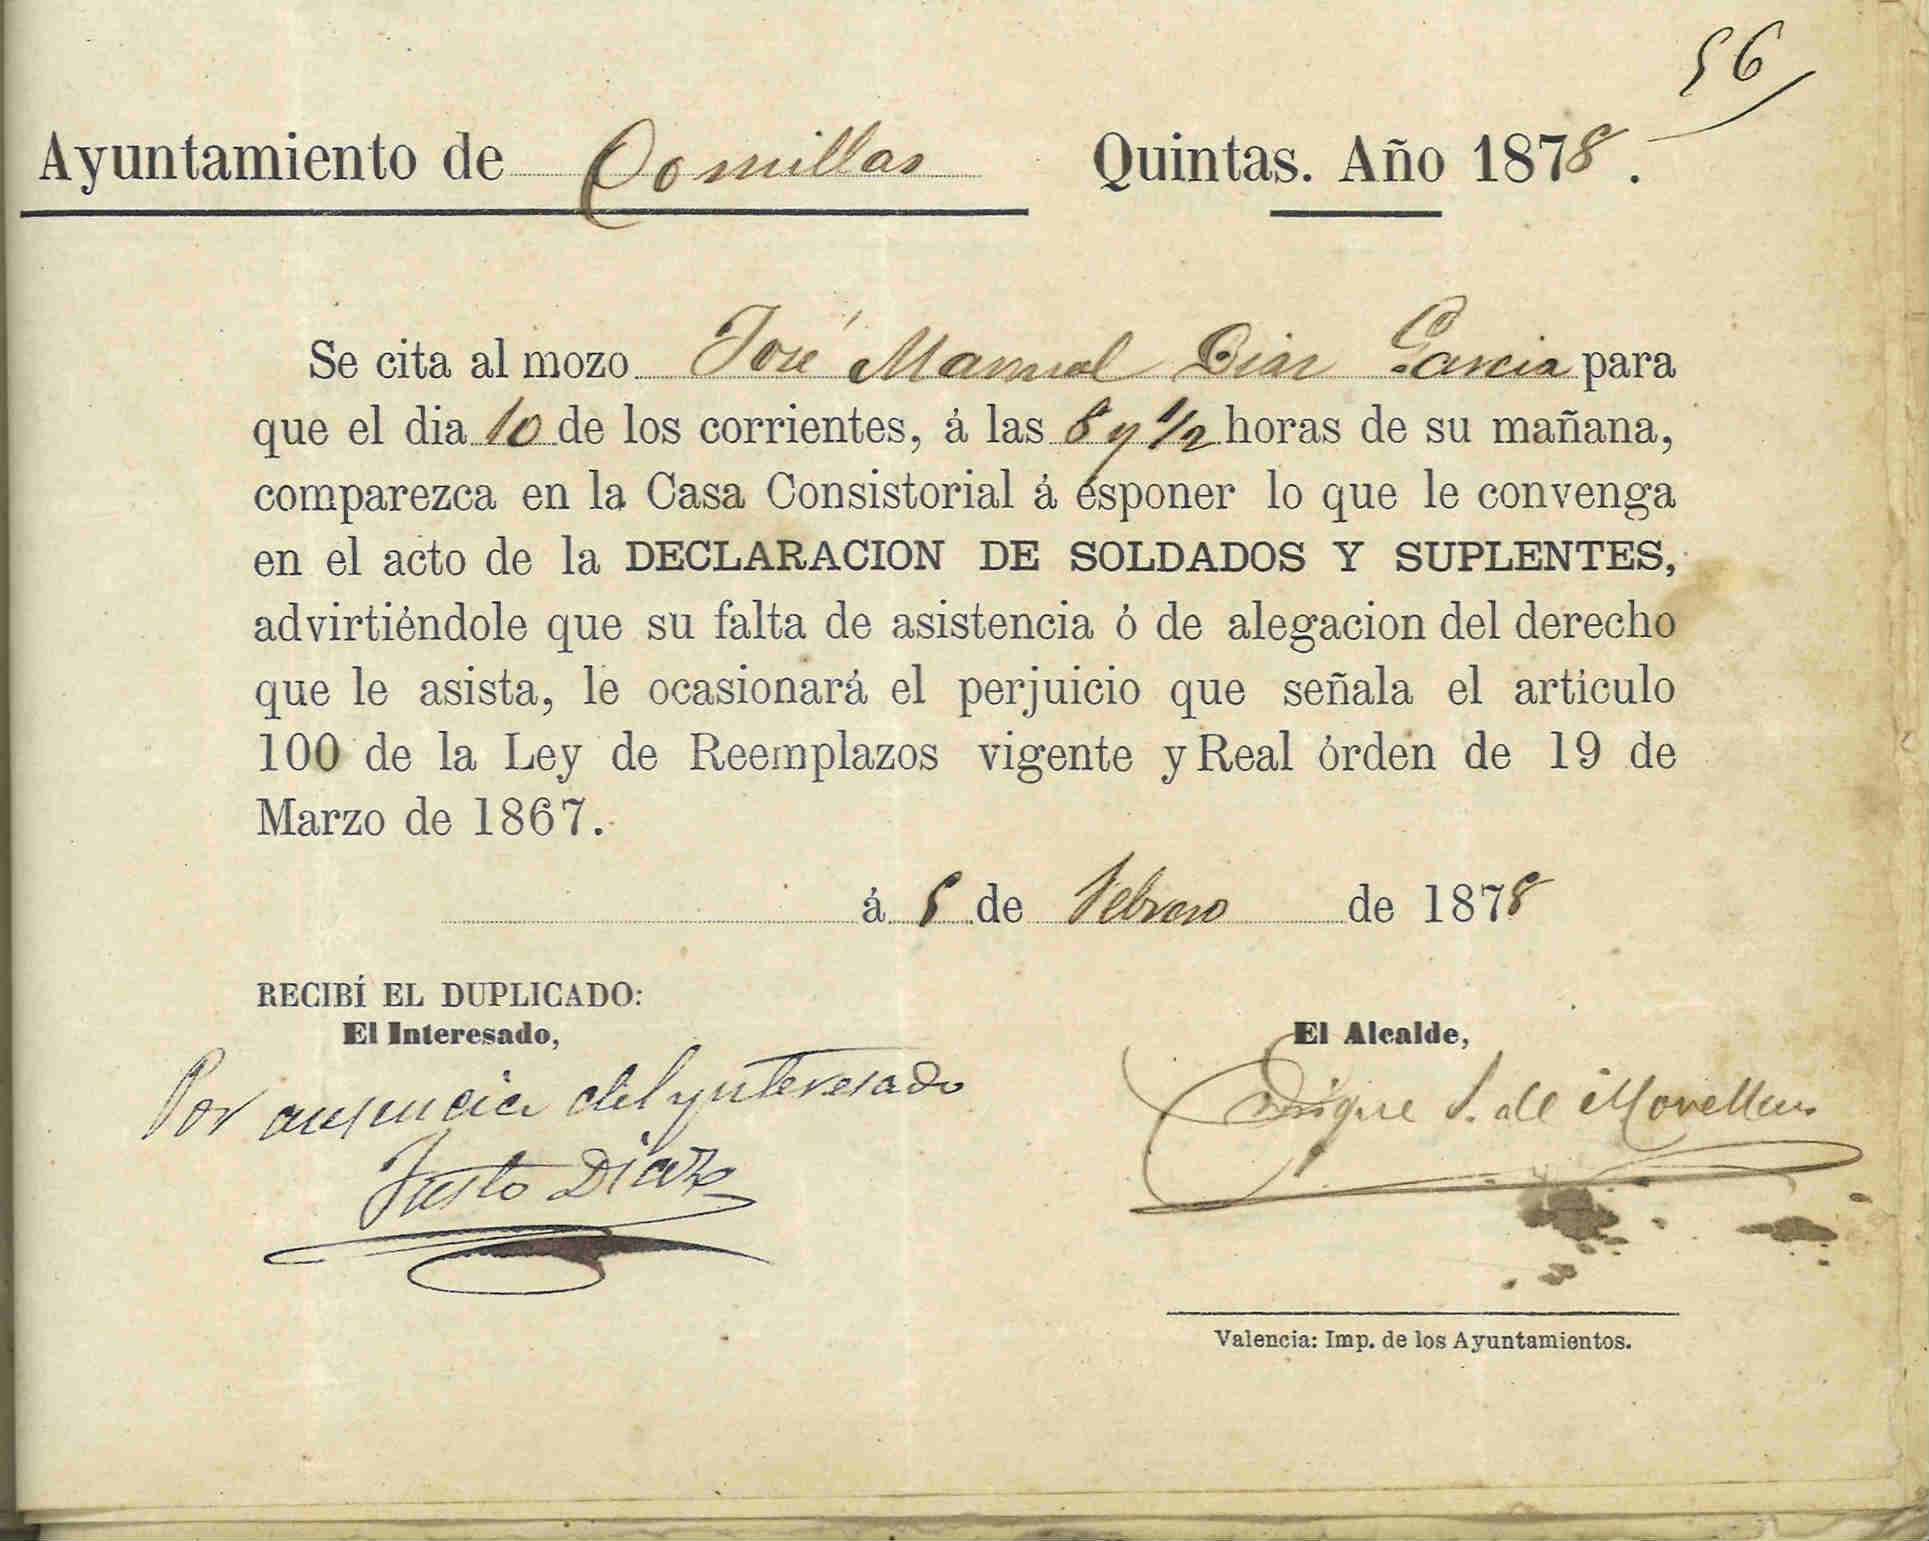 56
Ayuntamiento de Comillas Quintas. Año 1878.
Se cita al mozo José Manuel Diaz Garcia para
que el dia 10 de los corrientes, á las 8 y 1/2 horas de su mañana,
comparezca en la Casa Consistorial á esponer lo que le convenga
en el acto de la DECLARACION DE SOLDADOS Y SUPLENTES,
advirtiéndole que su falta de asistencia ó de alegacion del derecho
que le asista, le ocasionará el perjuicio que señala el artículo
100 de la Ley de Reemplazos vigente y Real órden de 19 de
Marzo de 1867.
á 5 de Febrero de 1878
RECIBÍ EL DUPLICADO:
El Interesado,
Por ausencia del ynteresado
Justo Diaz
El Alcalde,
Enrique S. de Movellan
Valencia: Imp. de los Ayuntamientos.